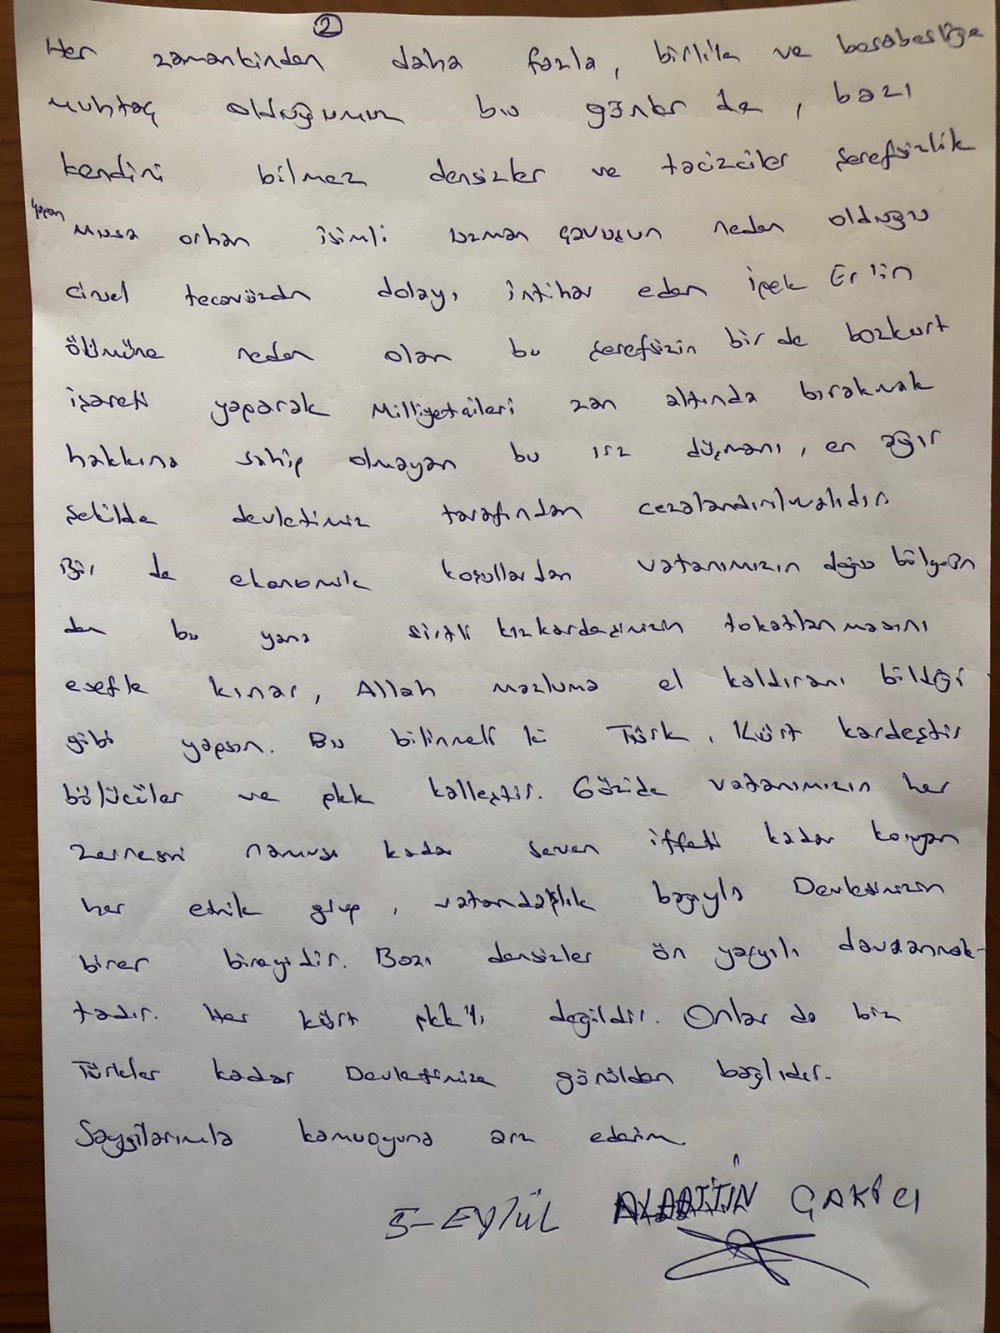 2
Her zamankinden daha fazla, birlik ve beraberliğe
muhtaç olduğumuz bu günler de, bazı
kendini bilmez densizler ve tacizciler şerefsizlik
yapan Musa orhan isimli uzman çavuşun neden olduğu
cinsel tecavüzden dolayı intihar eden ipek Er'in
ölümüne neden olan bu şerefsizin bir de bozkurt
işareti yaparak Milliyetçileri zan altında bırakmak
hakkına sahip olmayan bu ırz düşmanı, en ağır
şekilde devletimiz tarafından cezalandırılmalıdır
Bir de ekonomik koşullardan vatanımızın doğu bölgesin
den bu yana kızkardeşimizin tokatlanmasını
esefle kınar, Allah mazluma el kaldıranı bildiği
gibi yapsın. Bu bilinmeli ki Türk, Kürt kardeştir
bölücüler ve pkk kalleştir. Gözide vatanımızın her
zerresini namusu kadar seven iffeti kadar koruyan
her etnik grup, vatandaşlık bağıyla Devletimizin
birer bireyidir. Bazı densizler ön yargılı davranmak-
tadır. Her kürt pkk'lı değildir. Onlar da biz
Türkler kadar Devletimize gönülden bağlıdır.
Saygılarımla kamuoyuna arz ederim
5-EYLÜL ALAATTİN ÇAKICI